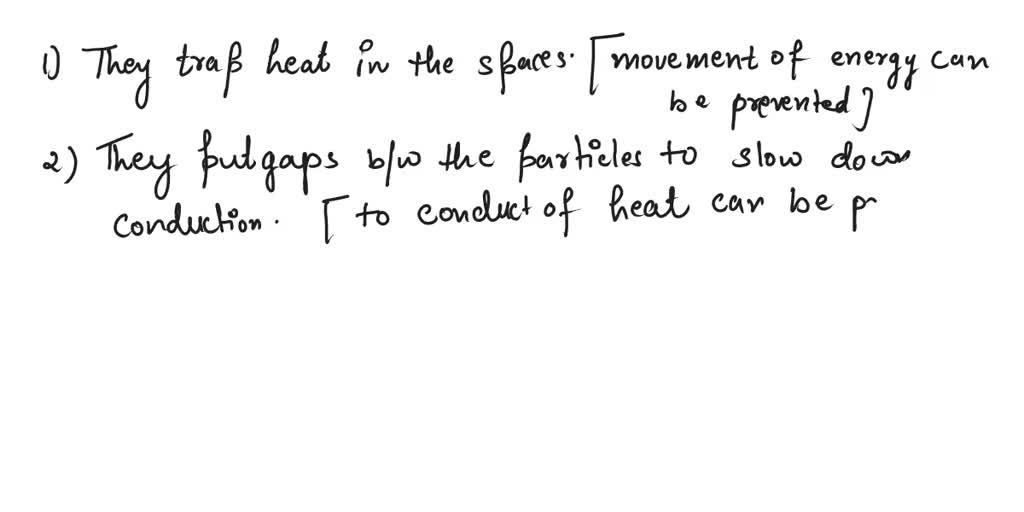 1) They trap heat in the spaces. [movement of energy can
be prevented]
2) They put gaps b/w the particles to slow down
conduction. [to conduct of heat can be p